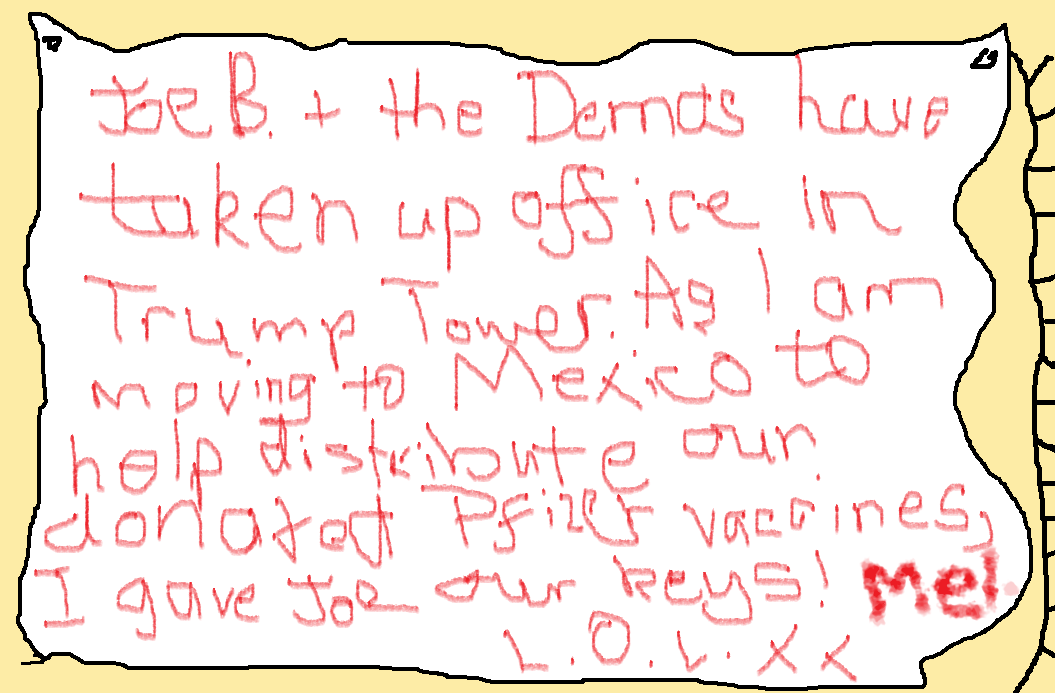 Joe B. + the Demos have
taken up office in
Trump Tower. As I am
moving to Mexico to
help distribute our
donated Pfizer vaccines,
I gave Joe our keys! Mel.
L.O.L. XX